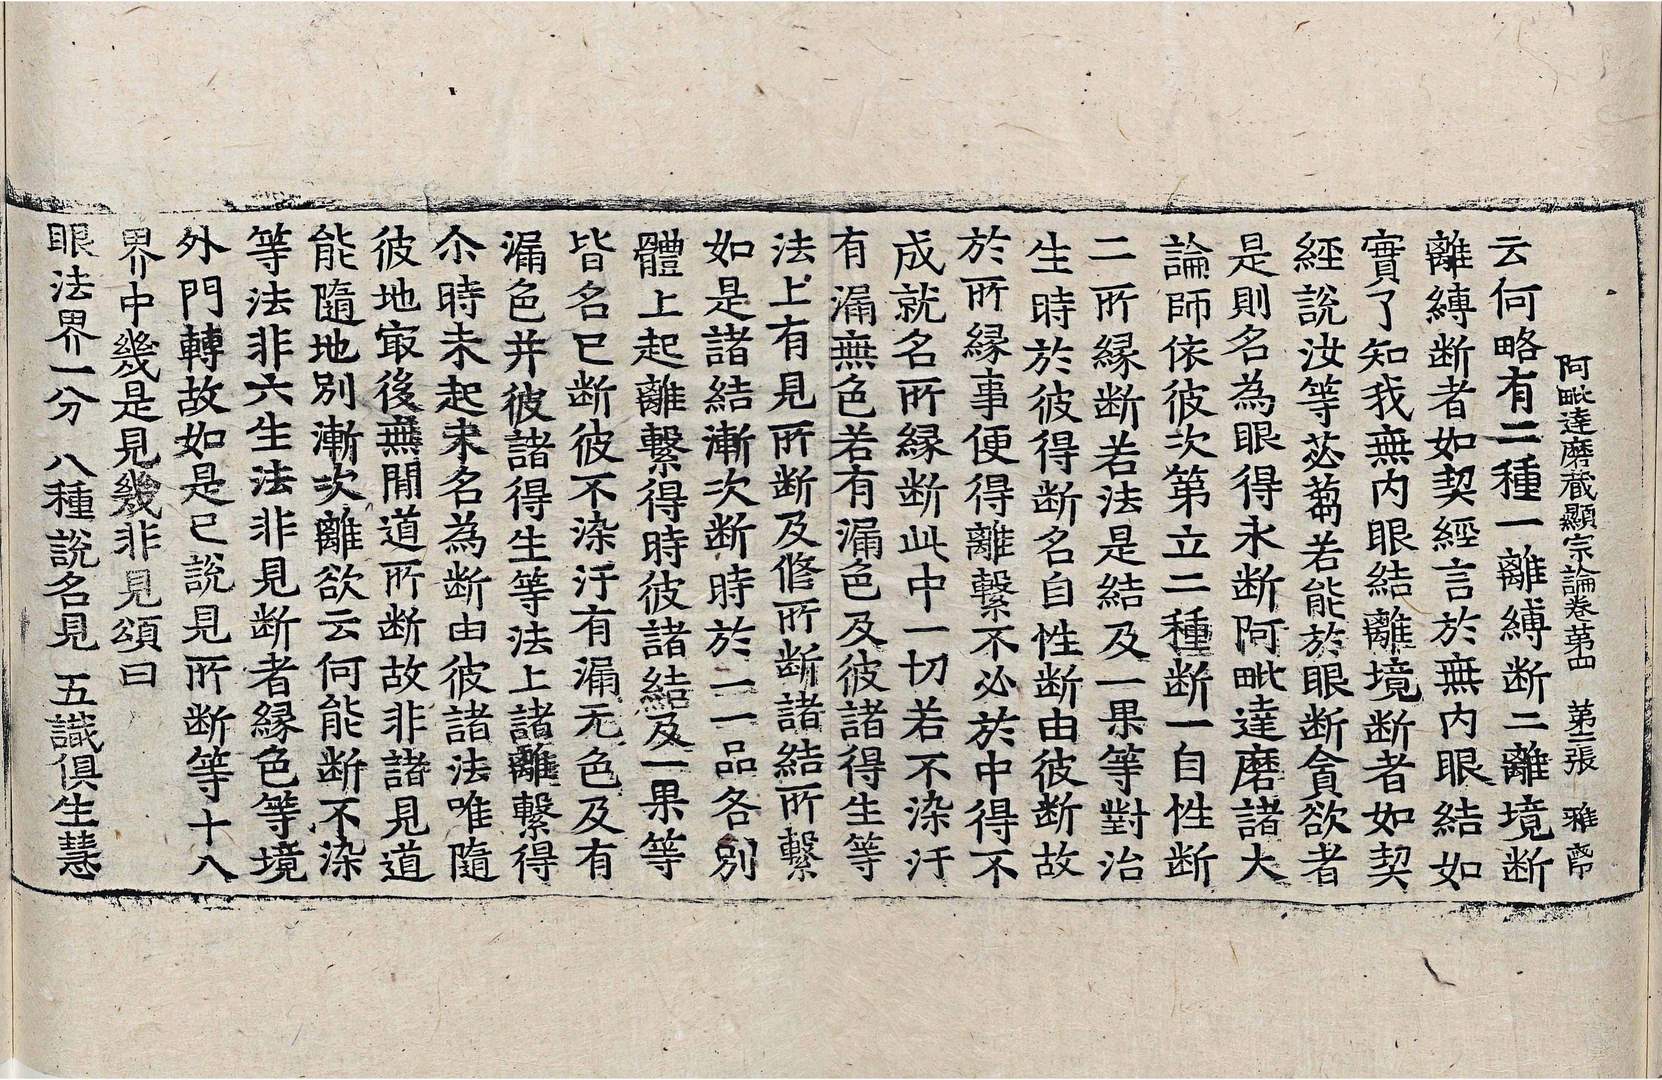 阿毗達磨藏顯宗論卷第四 第二張 雅帙
云何略有二種一離縛断二離境断
離縛断者如契經言於無内眼結如
實了知我無内眼結離境断者如契
經說汝等苾蒭若能於眼断貪欲者
是則名為眼得永断阿毗達磨諸大
論師依彼次第立二種断一自性断
二所緣断若法是結及一果等對治
生時於彼得断名自性断由彼断故
於所緣事便得離繫不必於中得不
成就名所緣断此中一切若不染汙
有漏無色若有漏色及彼諸得生等
法上有見所断及修所断諸結所繫
如是諸結漸次断時於一一品各別
體上起離繫得時彼諸結及一果等
皆名已断彼不染汙有漏无色及有
漏色并彼諸得生等法上諸離繫得
尒時未起未名為断由彼諸法唯隨
彼地㝡後無閒道所断故非諸見道
能隨地別漸次離欲云何能断不染
等法非六生法非見断者緣色等境
外門轉故如是已說見所断等十八
界中幾是見幾非見頌曰
眼法界一分 八種說名見 五識俱生慧